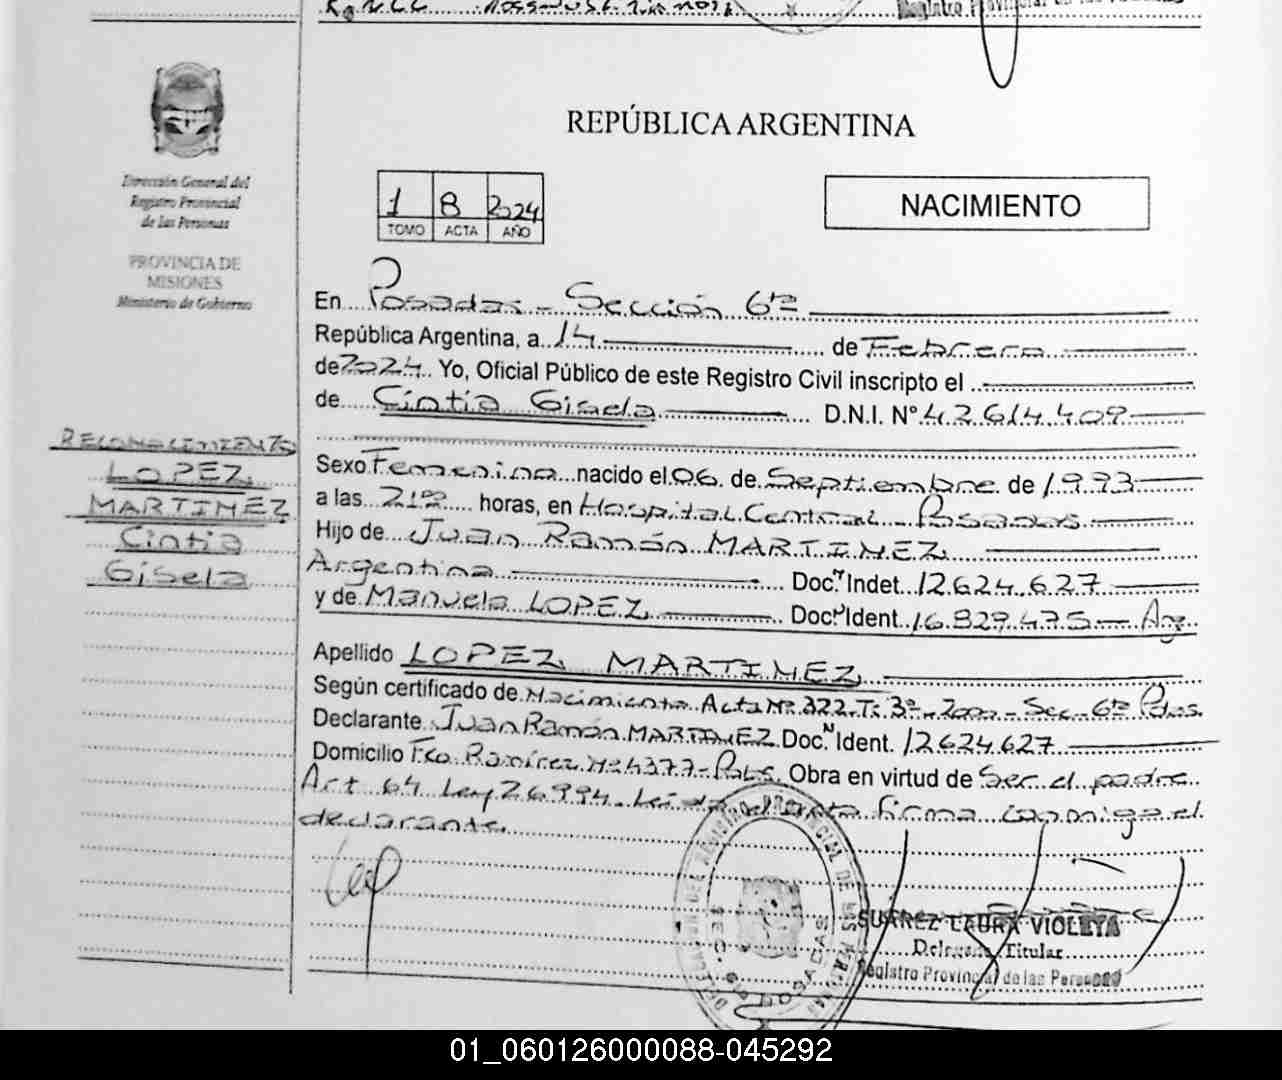 REPÚBLICA ARGENTINA
Dirección General del
Registro Provincial
de las Personas
PROVINCIA DE
MISIONES
Ministerio de Gobierno
1 8 2024
TOMO ACTA AÑO
NACIMIENTO
En Posadas - Sección 6ta
República Argentina, a 14 de Febrero
de 2024. Yo, Oficial Público de este Registro Civil inscripto el
de Cintia Gisela D.N.I. Nº 42.614.409
RECONOCIMIENTO
LOPEZ
MARTINEZ
Cintia
Gisela
Sexo Femenino nacido el 06 de Septiembre de 1.993
a las 21 horas, en Hospital Central - Posadas
Hijo de Juan Ramón MARTINEZ
Argentina Doc. Indet. 12.624.627
y de Manuela LOPEZ Doc. Ident. 16.829.475 - Arg
Apellido LOPEZ MARTINEZ
Según certificado de Nacimiento Acta Nº 322 - Tº 3º - 2000 - Sec. 6ta Pdas.
Declarante Juan Ramón MARTINEZ Doc. Ident. 12.624.627
Domicilio Fco. Ramírez Nº 4377 - Obra en virtud de Ser el padre
Art 64 Ley 26994. Leida el acta firma conmigo el
declarante.
SUAREZ LAURA VIOLETA
Delegada Titular
Registro Provincial de las Personas
01_060126000088-045292